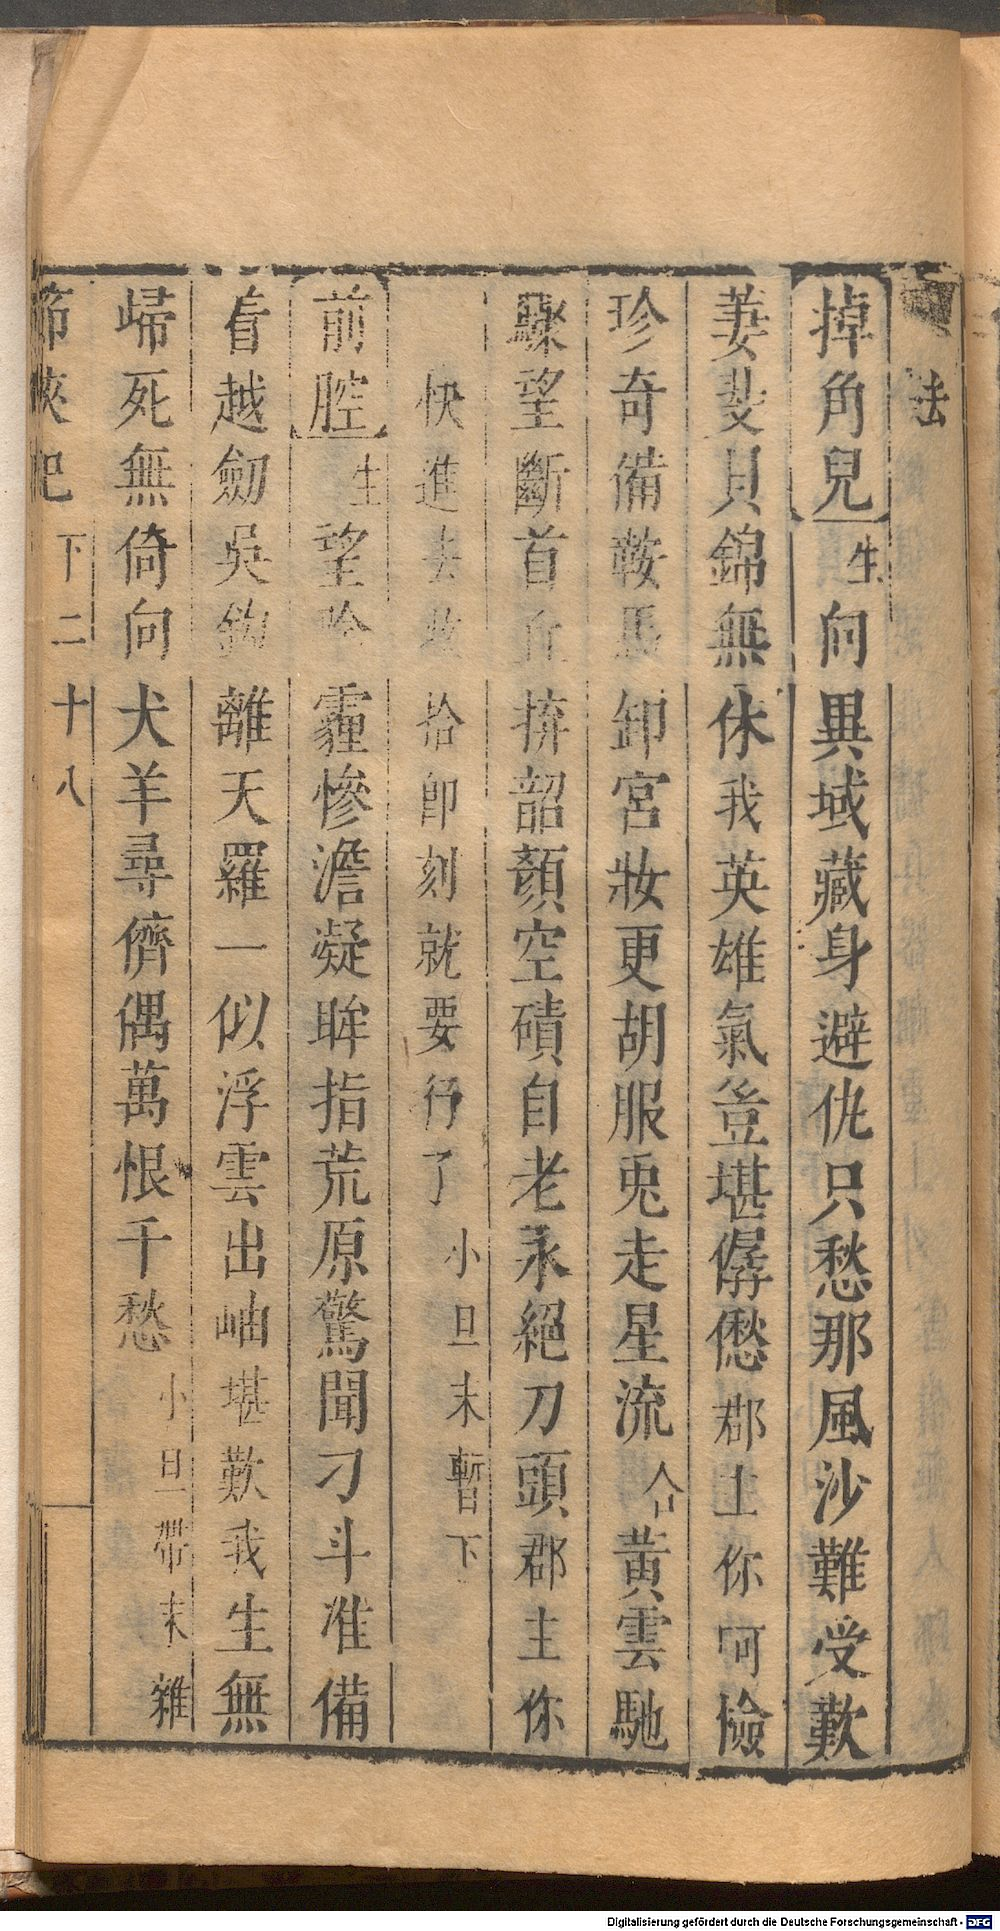 法
掉角兒 生 向異域藏身避仇只愁那風沙難受歎
萋斐貝錦無休我英雄氣豈堪僝僽郡主你呵撿
珍奇備鞍馬卸宮妝更胡服兎走星流 合 黄雲馳
驟望斷首丘拚韶顏空磧自老永絕刀頭郡主你
快進去收拾即刻就要行了 小旦末暫下
前腔 生 望吟霾慘澹凝眸指荒原驚聞刁斗准備
着越劒吳鈎離天羅一似浮雲出岫堪歎我生無
歸死無倚向犬羊尋儕偶萬恨千愁 小旦帶末雜
節俠記 下 二十八
Digitalisierung gefördert durch die Deutsche Forschungsgemeinschaft - DFG